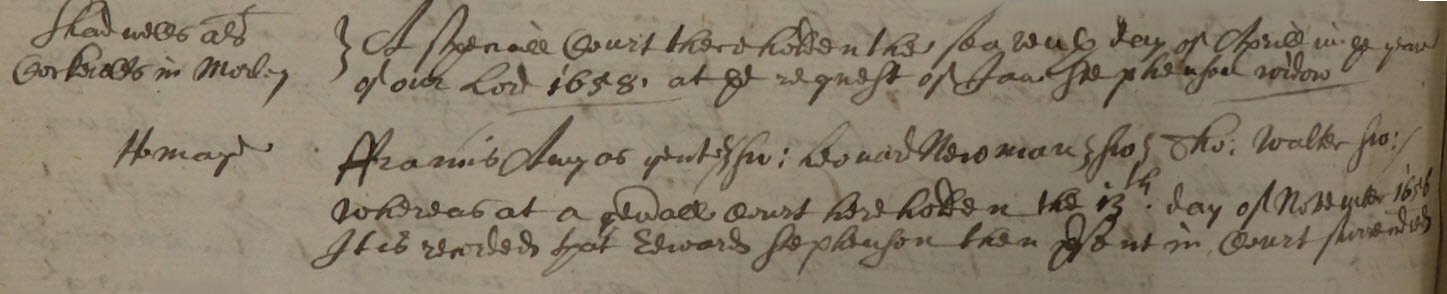 Shadwells als
Corkeretts in Morley
A Speciall Court there holden the seaventh day of Aprill in ye yeare
of our Lord 1658. at ye request of Jane Stephenson widow
Homage
ffrancis Amyas gent Jur: Leonard Newman Jur Tho: Walker Jur:
Whereas at a gen'all Court here holden the 13th. day of November 1656
It is recorded that Edward Stephenson then p'sent in Court surrendred